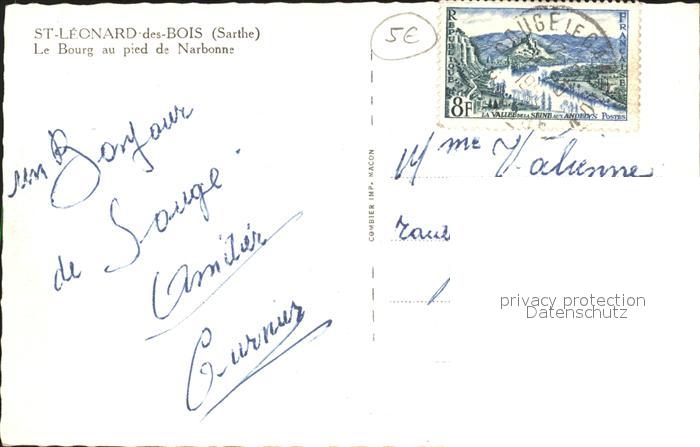 ST-LÉONARD-des-BOIS (Sarthe)
Le Bourg au pied de Narbonne
5€
RÉPUBLIQUE
FRANÇAISE
8F
LA VALLÉE DE LA SEINE AUX ANDELYS POSTES
SOUGÉ LE
un Bonjour
de Sougé.
Amitiés
COMBIER IMP. MACON
Mme
privacy protection
Datenschutz